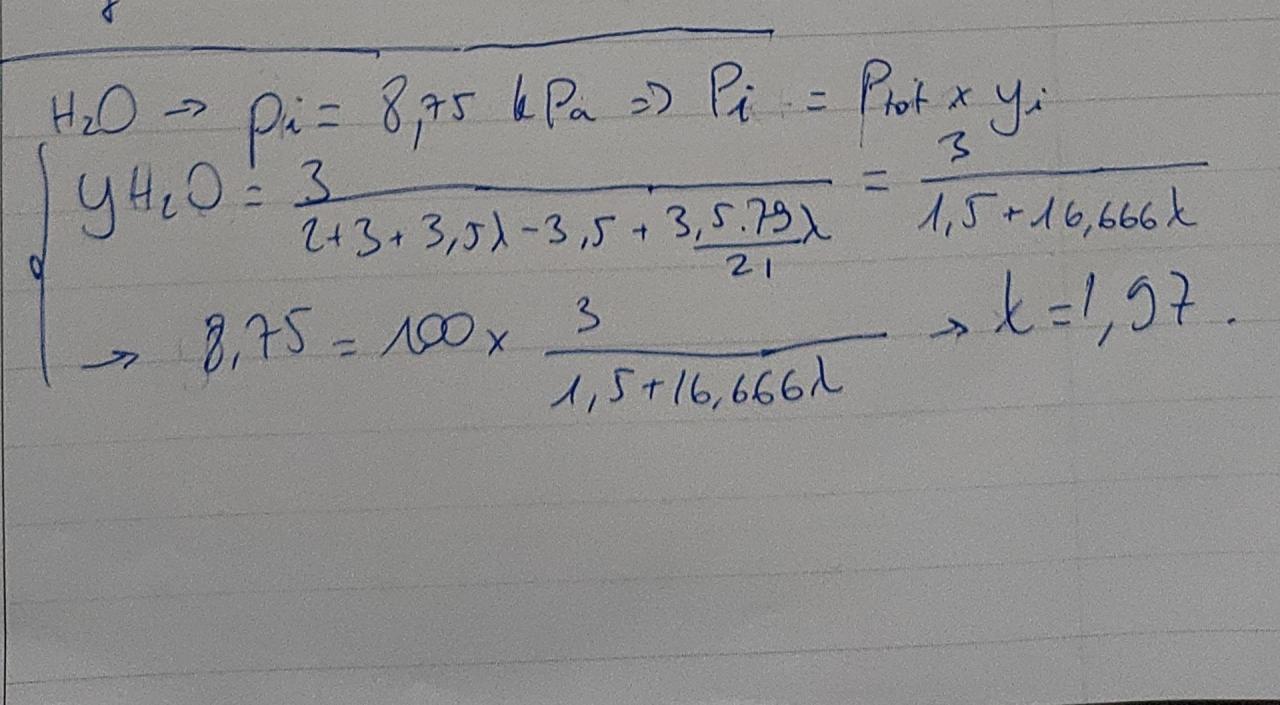 H₂O → pi = 8,75 kPa => Pi = Ptot x yi
yH₂O = 3 / (2+3+3,5λ-3,5 + 3,5.79λ / 21) = 3 / (1,5+16,666λ)
→ 8,75 = 100 x 3 / (1,5+16,666λ) → λ = 1,97.